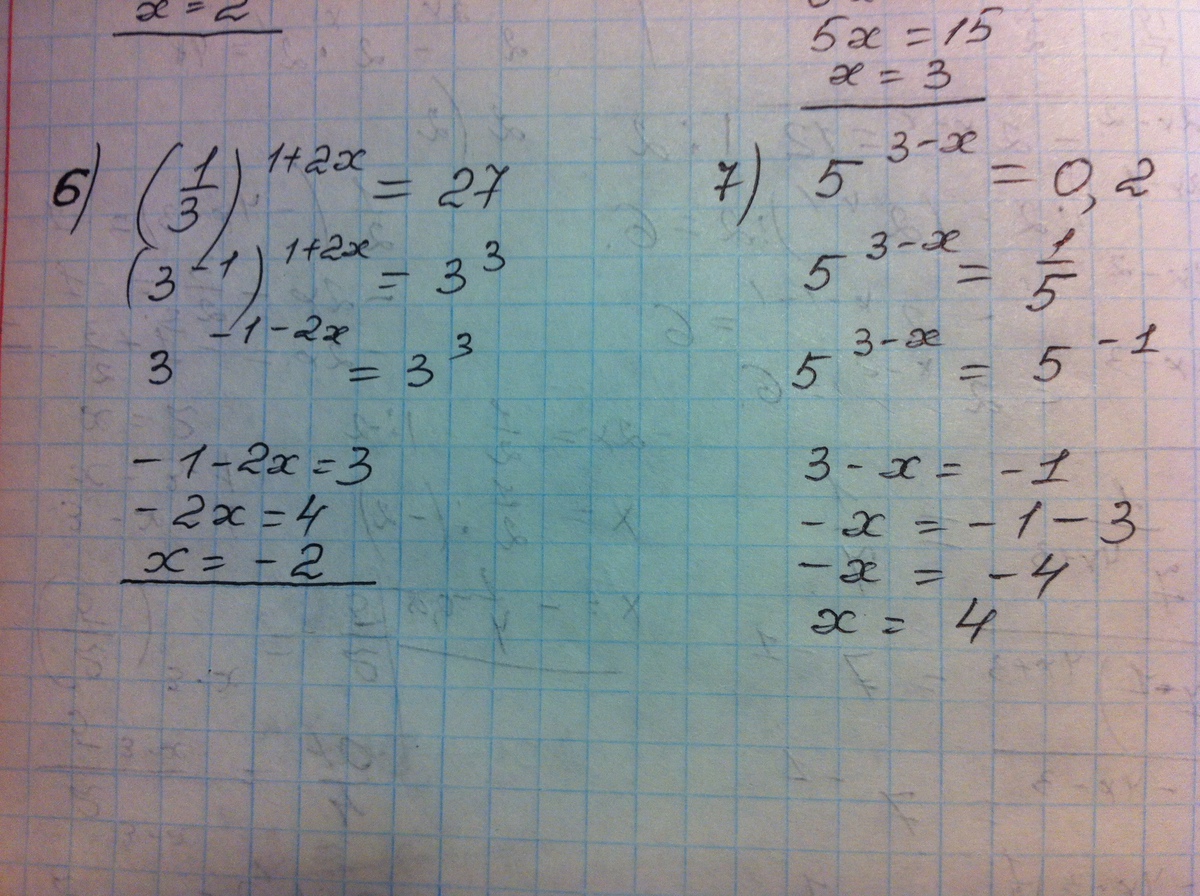 x = 2
5x = 15
x = 3
6) (1/3)^(1+2x) = 27
(3^(-1))^(1+2x) = 3^3
3^(-1-2x) = 3^3
-1-2x = 3
-2x = 4
x = -2
7) 5^(3-x) = 0,2
5^(3-x) = 1/5
5^(3-x) = 5^(-1)
3-x = -1
-x = -1-3
-x = -4
x = 4